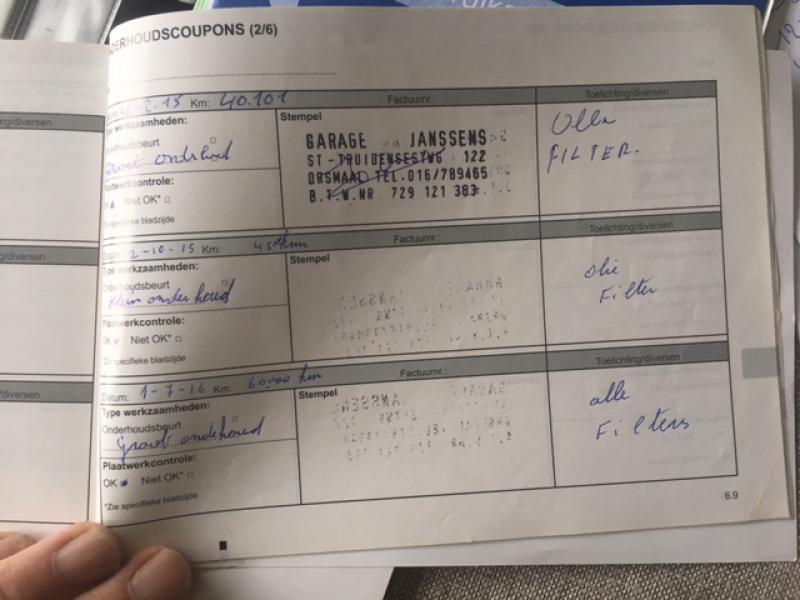 ERHOUDSCOUPONS (2/6)
4-2-15 Km: 40.101 Factuurnr.: Toelichting/diversen
type werkzaamheden:
houdsbeurt
Groot onderhoud
Plaatwerkcontrole:
Niet OK*
specifieke bladzijde
Stempel
GARAGE JANSSENS
ST-TRUIDENSESTWG 122
ORSMAAL TEL.016/789465
B.T.W.NR 729 121 383
FILTER.
Datum: 2-10-15 Km: Factuurnr.: Toelichting/diversen
Type werkzaamheden:
Onderhoudsbeurt
Klein onderhoud
Plaatwerkcontrole:
OK Niet OK*
*Zie specifieke bladzijde
Stempel
olie
Filter
Datum: 1-7-16 Km: 60.000 km Factuurnr.: Toelichting/diversen
Type werkzaamheden:
Onderhoudsbeurt
Groot onderhoud
Plaatwerkcontrole:
OK Niet OK*
*Zie specifieke bladzijde
Stempel
alle
Filters
6.9
ng/diversen
g/diversen
/diversen